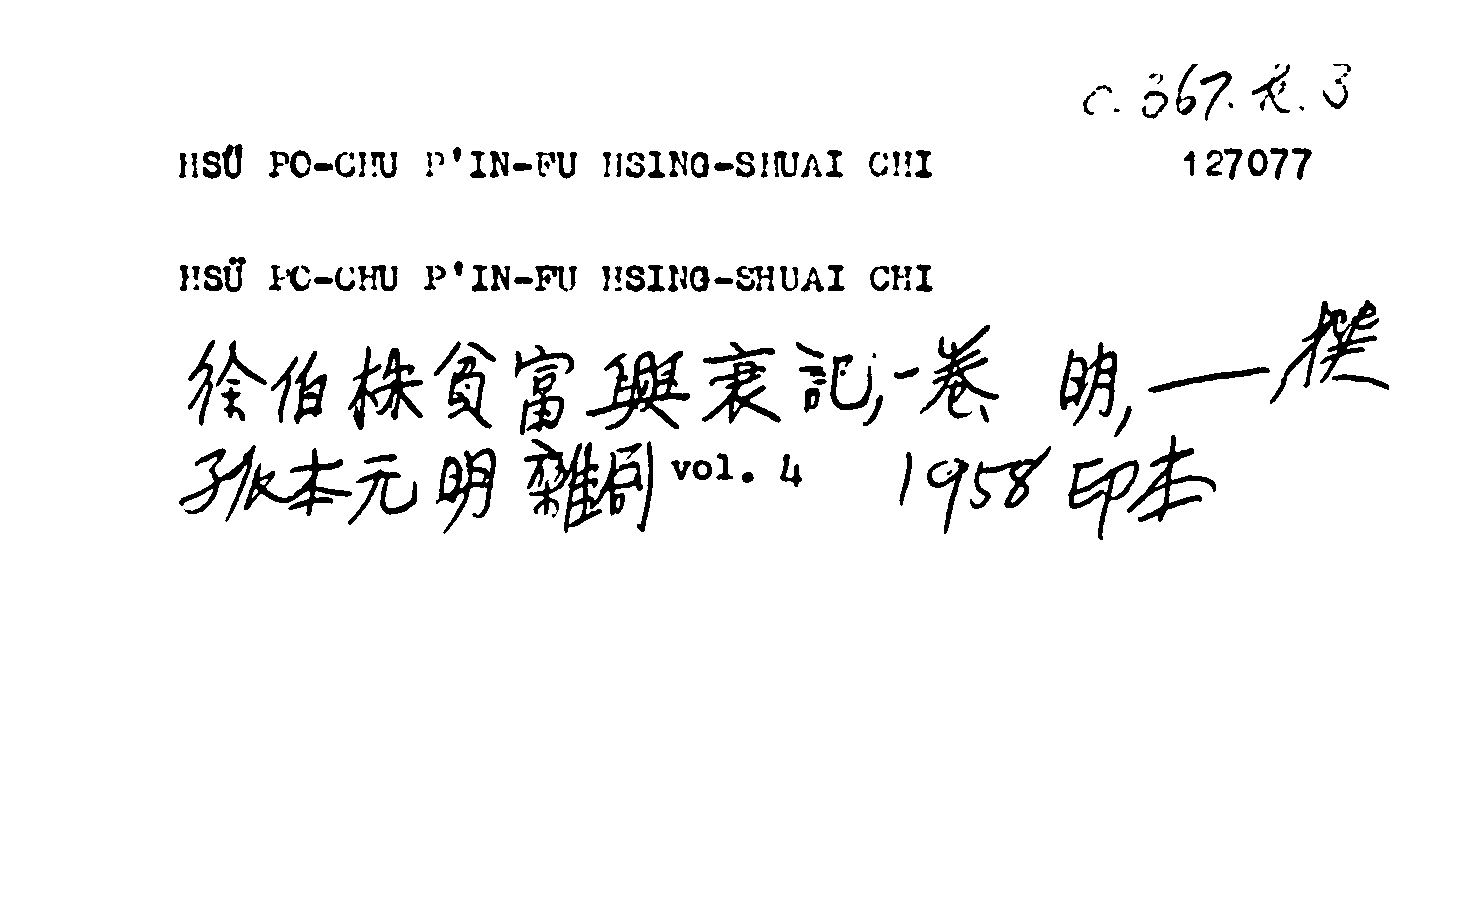 C. 367. K. 3
HSÜ PO-CHU P'IN-FU HSING-SHUAI CHI 127077
HSÜ PO-CHU P'IN-FU HSING-SHUAI CHI
徐伯株貧富興衰記,一卷 明,——撰
孤本元明雜劇 vol. 4 1958印本